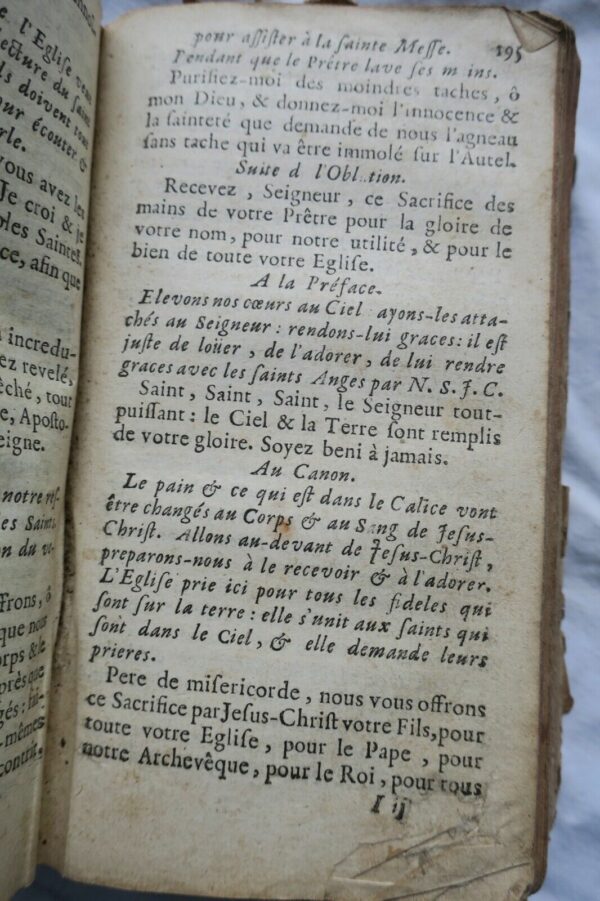 l'Eglise veut
lecture du saint
ils doivent tous
our écouter &
rle.
vous avez les
Je croi & je
les Saintes
ce, afin que
incredu-
ez revelé,
êché, tout
e, Aposto-
eigne.
notre res-
es Saint
on du ve-
ffrons, ô
que nous
orps & le
près que
gés :
-mêmes
contrit,
pour aſſiſter à la ſainte Meſſe. 195
Pendant que le Prêtre lave ſes m ins.
Purifiez-moi des moindres taches, ô
mon Dieu, & donnez-moi l'innocence &
la ſainteté que demande de nous l'agneau
ſans tache qui va être immolé ſur l'Autel.
Suite d l'Obl tion.
Recevez, Seigneur, ce Sacrifice des
mains de votre Prêtre pour la gloire de
votre nom, pour notre utilité, & pour le
bien de toute votre Egliſe.
A la Préface.
Elevons nos cœurs au Ciel ayons-les atta-
chés au Seigneur : rendons-lui graces : il eſt
juſte de loüer, de l'adorer, de lui rendre
graces avec les ſaints Anges par N. S. J. C.
Saint, Saint, Saint, le Seigneur tout-
puiſſant : le Ciel & la Terre ſont remplis
de votre gloire. Soyez beni à jamais.
Au Canon.
Le pain & ce qui eſt dans le Calice vont
être changés au Corps & au Sang de Jeſus-
Chriſt. Allons au-devant de Jeſus-Chriſt,
preparons-nous à le recevoir & à l'adorer.
L'Egliſe prie ici pour tous les fideles qui
ſont ſur la terre : elle s'unit aux ſaints qui
ſont dans le Ciel, & elle demande leurs
prieres.
Pere de miſericorde, nous vous offrons
ce Sacrifice par Jeſus-Chriſt votre Fils, pour
toute votre Egliſe, pour le Pape, pour
notre Archevêque, pour le Roi, pour tous
I ij